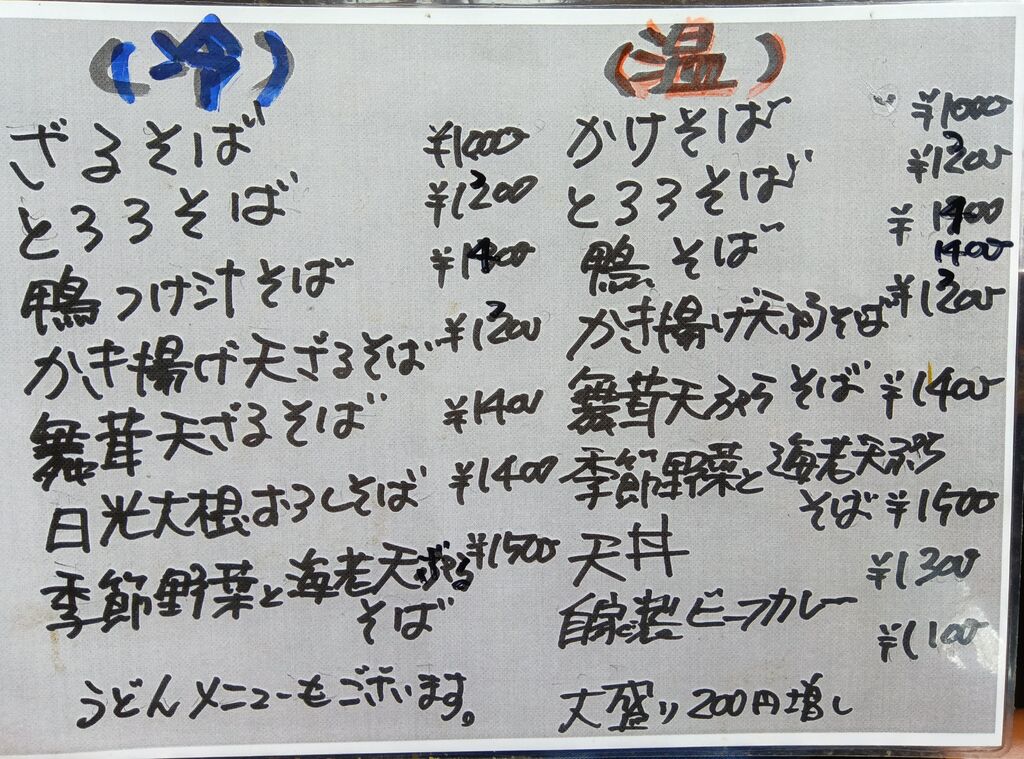 (冷)
ざるそば ¥1000
とろろそば ¥1300
鴨つけ汁そば ¥1400
かき揚げ天ざるそば ¥1300
舞茸天ざるそば ¥1400
日光大根おろしそば ¥1400
季節野菜と海老天ざる ¥1500
そば
うどんメニューもございます。
(温)
かけそば ¥1000
とろろそば ¥1300
鴨そば ¥1400
1400
かき揚げ天ぷらそば ¥1300
舞茸天ぷらそば ¥1400
季節野菜と海老天ぷら
そば ¥1500
天丼 ¥1300
自家製ビーフカレー ¥1100
大盛り200円増し